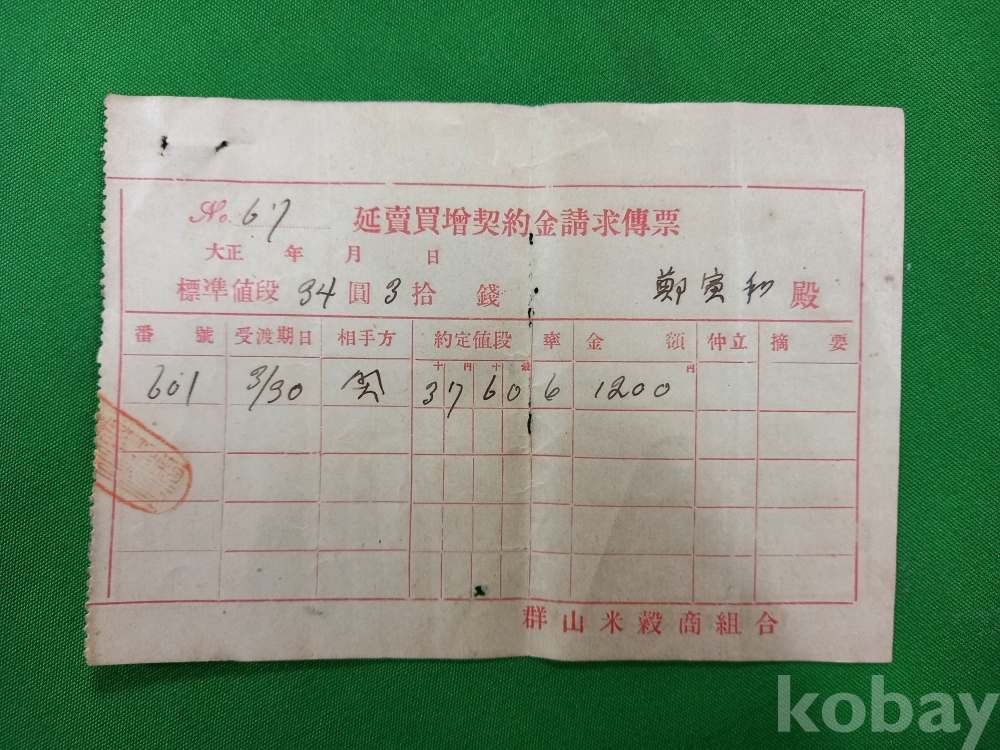 No. 67 延賣買增契約金請求傳票
大正 年 月 日
標準値段 34 圓 3 拾 錢 鄭寅和 殿
番號 受渡期日 相手方 約定値段 率 金額 仲立 摘要
十 円 十 錢 円
601 3/30 37 60 6 1200
群山米穀商組合
kobay